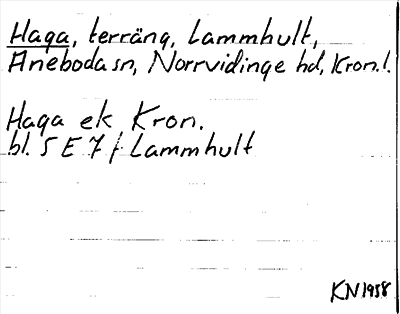 Haga, terräng, Lammhult,
Aneboda sn, Norrvidinge hd, Kron.l.
Haga ek Kron.
bl. 5 E 7 f Lammhult
KN 1958